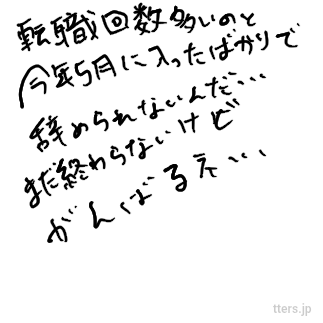 転職回数多いのと
今年5月に入ったばかりで
辞められないんだ…
まだ終わらないけど
がんばるえ…
tters.jp